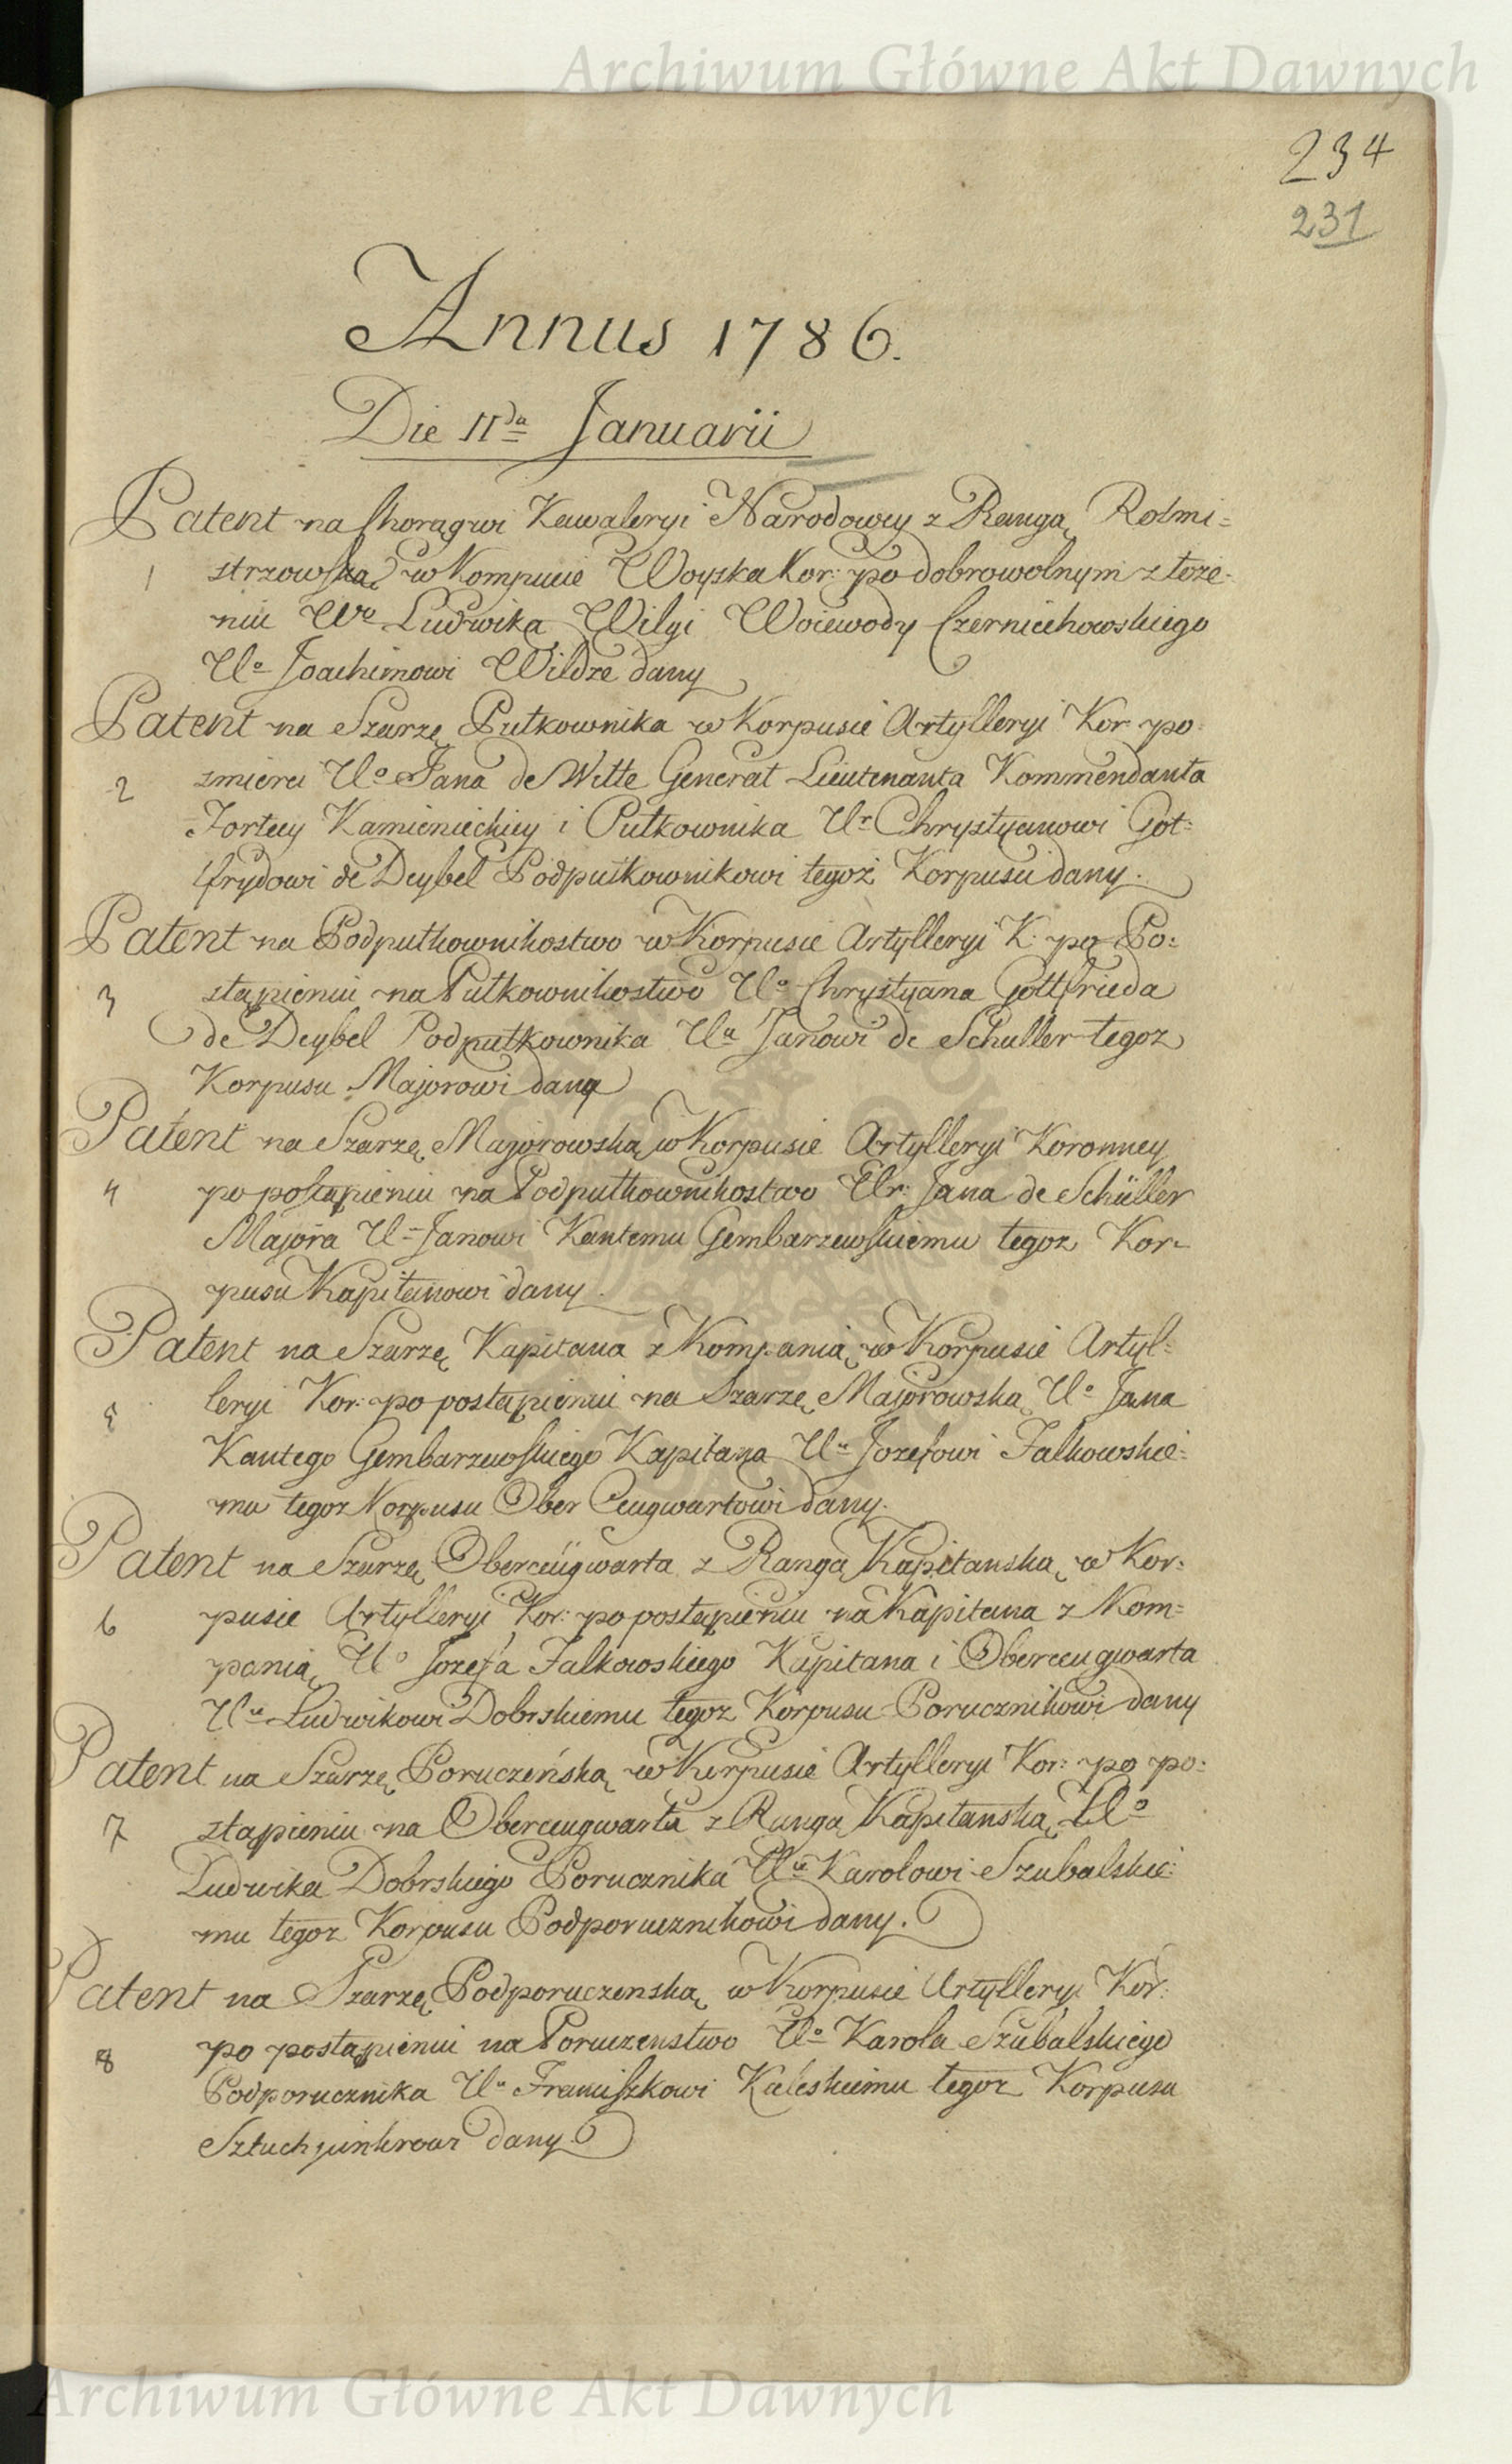 Archiwum Główne Akt Dawnych
234
231
Annus 1786.
Die IIda Januarii
Patent na Chorągwi Kawaleryi Narodowey z Rangą Rotmi=
1 strzowską w Kompucie Woyska Kor: po dobrowolnym złoże=
niu Wo Ludwika Wilgi Woiewody Czerniechowskiego
Uo Joachimowi Wildze dany
Patent na Szarzę Pułkownika w Korpusie Artylleryi Kor: po
2 zmierci Uo Jana de Witte Generał Lieutenanta Kommendanta
Fortecy Kamienieckiey i Pułkownika Ur Chrystyanowi Got=
tfrydowi de Deybel Podpułkownikowi tegoż Korpusu dany.
Patent na Podpułkownikostwo w Korpusie Artylleryi K: po Po=
3 stąpieniu na Pułkownikostwo Uo Chrystyana Gottfrieda
de Deybel Podpułkownika Uu Janowi de Schuller tegoz
Korpusu Majorowi dany
Patent na Szarzę Majorowską w Korpusie Artylleryi Koronney
4 po postąpieniu na Podpułkownikostwo Ur: Jana de Schüller
Majora U Janowi Kantemu Gembarzewskiemu tegoz Kor=
pusu Kapitanowi dany.
Patent na Szarzę Kapitana z Kompanią w Korpusie Artyl=
5 leryi Kor: po postąpieniu na Szarzę Majorowską Uo Jana
Kantego Gembarzewskiego Kapitana Uu Jozefowi Falkowskie=
mu tegoz Korpusu Ober Ceugwartowi dany.
Patent na Szarzę Oberceügwarta z Rangą Kapitanską w Kor=
6 pusie Artylleryi Kor: po postąpieniu na Kapitana z Kom=
panią Uo Jozefa Falkowskiego Kapitana i Oberceugwarta
Uu Ludwikowi Dobrskiemu tegoz Korpusu Porucznikowi dany
Patent na Szarzę Poruczeńską w Korpusie Artylleryi Kor: po po=
7 stąpieniu na Oberceugwarta z Rangą Kapitanską Uo
Ludwika Dobrskiego Porucznika Uu Karolowi Szubalskie=
mu tegoz Korpusu Podporucznikowi dany.
Patent na Szarzę Podporuczenską w Korpusie Artylleryi Kor:
8 po postąpieniu na Poruczenstwo Uo Karola Szubalskiego
Podporucznika Uu Franciszkowi Kaleskiemu tegoz Korpusu
Sztuchjunkrowi dany
Archiwum Główne Akt Dawnych